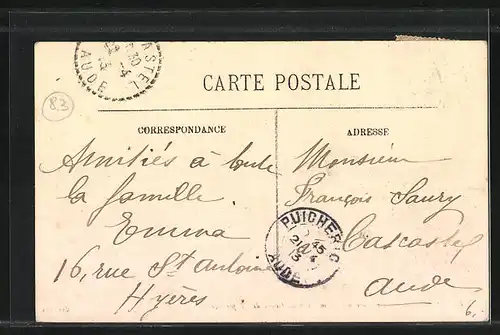 83
ASTEL
AUDE
CARTE POSTALE
CORRESPONDANCE
ADRESSE
Amitiés à toute
la famille.
Emma
16, rue St Antoine
Hyères
Monsieur
François Saury
Cascastel
Aude
PUICHERIC
AUDE
6.